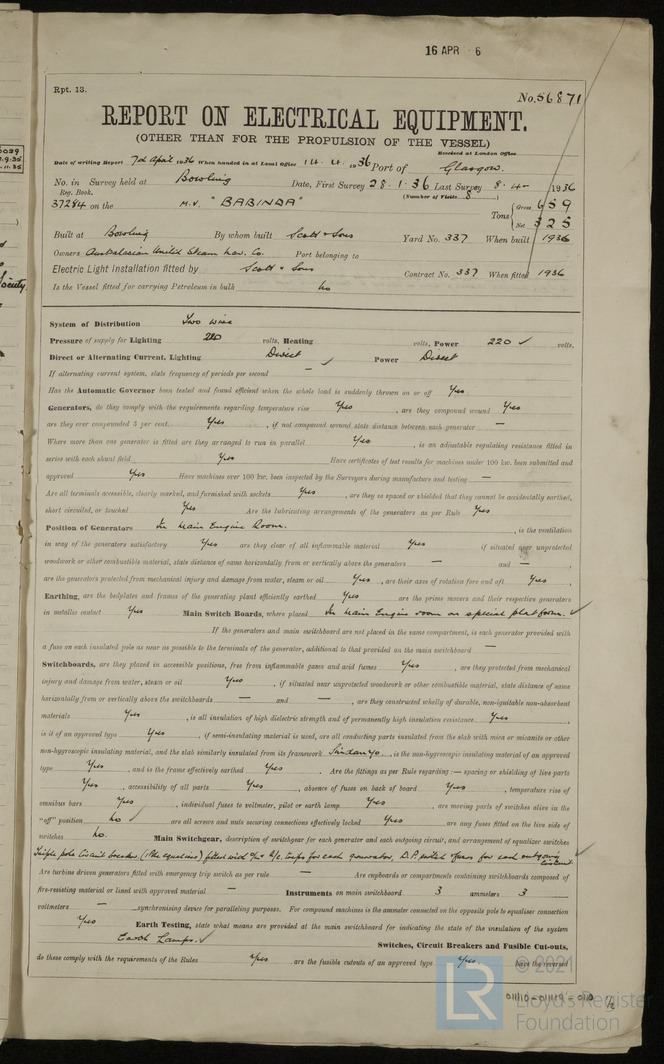 16 APR 6
Rpt. 13.
No. 56871
REPORT ON ELECTRICAL EQUIPMENT.
(OTHER THAN FOR THE PROPULSION OF THE VESSEL)
Received at London Office
Date of writing Report 7th April 1936 When handed in at Local Office 14. 4. 1936 Port of Glasgow.
No. in Survey held at Bowling Date, First Survey 28.1.36 Last Survey 8.4. 1936
Reg. Book. (Number of Visits 8)
37284 on the M.V. "BABINDA" Tons { Gross 659
Net 325
Built at Bowling By whom built Scott & Sons Yard No. 337 When built 1936
Owners Australasian United Steam Nav. Co. Port belonging to
Electric Light Installation fitted by Scott & Sons Contract No. 337 When fitted 1936
Is the Vessel fitted for carrying Petroleum in bulk No
System of Distribution Two wire
Pressure of supply for Lighting 220 volts, Heating volts, Power 220 ✓ volts.
Direct or Alternating Current, Lighting Direct ✓ Power Direct
If alternating current system, state frequency of periods per second —
Has the Automatic Governor been tested and found efficient when the whole load is suddenly thrown on or off Yes.
Generators, do they comply with the requirements regarding temperature rise Yes, are they compound wound Yes
are they over compounded 5 per cent. Yes, if not compound wound state distance between each generator —
Where more than one generator is fitted are they arranged to run in parallel Yes, is an adjustable regulating resistance fitted in
series with each shunt field Yes Have certificates of test results for machines under 100 kw. been submitted and
approved Yes Have machines over 100 kw. been inspected by the Surveyors during manufacture and testing —
Are all terminals accessible, clearly marked, and furnished with sockets Yes, are they so spaced or shielded that they cannot be accidentally earthed,
short circuited, or touched Yes Are the lubricating arrangements of the generators as per Rule Yes
Position of Generators In Main Engine Room., is the ventilation
in way of the generators satisfactory Yes are they clear of all inflammable material Yes if situated near unprotected
woodwork or other combustible material, state distance of same horizontally from or vertically above the generators — and —,
are the generators protected from mechanical injury and damage from water, steam or oil Yes, are their axes of rotation fore and aft Yes,
Earthing, are the bedplates and frames of the generating plant efficiently earthed Yes are the prime movers and their respective generators
in metallic contact Yes Main Switch Boards, where placed In Main Engine room on special platform. ✓
If the generators and main switchboard are not placed in the same compartment, is each generator provided with
a fuse on each insulated pole as near as possible to the terminals of the generator, additional to that provided on the main switchboard —
Switchboards, are they placed in accessible positions, free from inflammable gases and acid fumes Yes, are they protected from mechanical
injury and damage from water, steam or oil Yes, if situated near unprotected woodwork or other combustible material, state distance of same
horizontally from or vertically above the switchboards — and —, are they constructed wholly of durable, non-ignitable non-absorbent
materials Yes, is all insulation of high dielectric strength and of permanently high insulation resistance Yes,
is it of an approved type Yes, if semi-insulating material is used, are all conducting parts insulated from the slab with mica or micanite or other
non-hygroscopic insulating material, and the slab similarly insulated from its framework Sindanyo, is the non-hygroscopic insulating material of an approved
type Yes, and is the frame effectively earthed Yes. Are the fittings as per Rule regarding:— spacing or shielding of live parts
Yes, accessibility of all parts Yes, absence of fuses on back of board Yes, temperature rise of
omnibus bars Yes, individual fuses to voltmeter, pilot or earth lamp Yes, are moving parts of switches alive in the
"off" position No ✓ are all screws and nuts securing connections effectively locked Yes are any fuses fitted on the live side of
switches No. Main Switchgear, description of switchgear for each generator and each outgoing circuit, and arrangement of equalizer switches
Triple pole Circuit breaker, (1 the equaliser) fitted with trips for each generator, D.P. switch & fuses for each outgoing circuit
Are turbine driven generators fitted with emergency trip switch as per rule — Are cupboards or compartments containing switchboards composed of
fire-resisting material or lined with approved material — Instruments on main switchboard 3 ammeters 3
voltmeters — synchronising device for paralleling purposes. For compound machines is the ammeter connected on the opposite pole to equaliser connection
Yes Earth Testing, state what means are provided at the main switchboard for indicating the state of the insulation of the system
Earth Lamps. ✓ Switches, Circuit Breakers and Fusible Cut-outs,
do these comply with the requirements of the Rules Yes, are the fusible cutouts of an approved type Yes, have the reversed
© 2021
LR Lloyd's Register
Foundation
011110-011119-0110 1/2